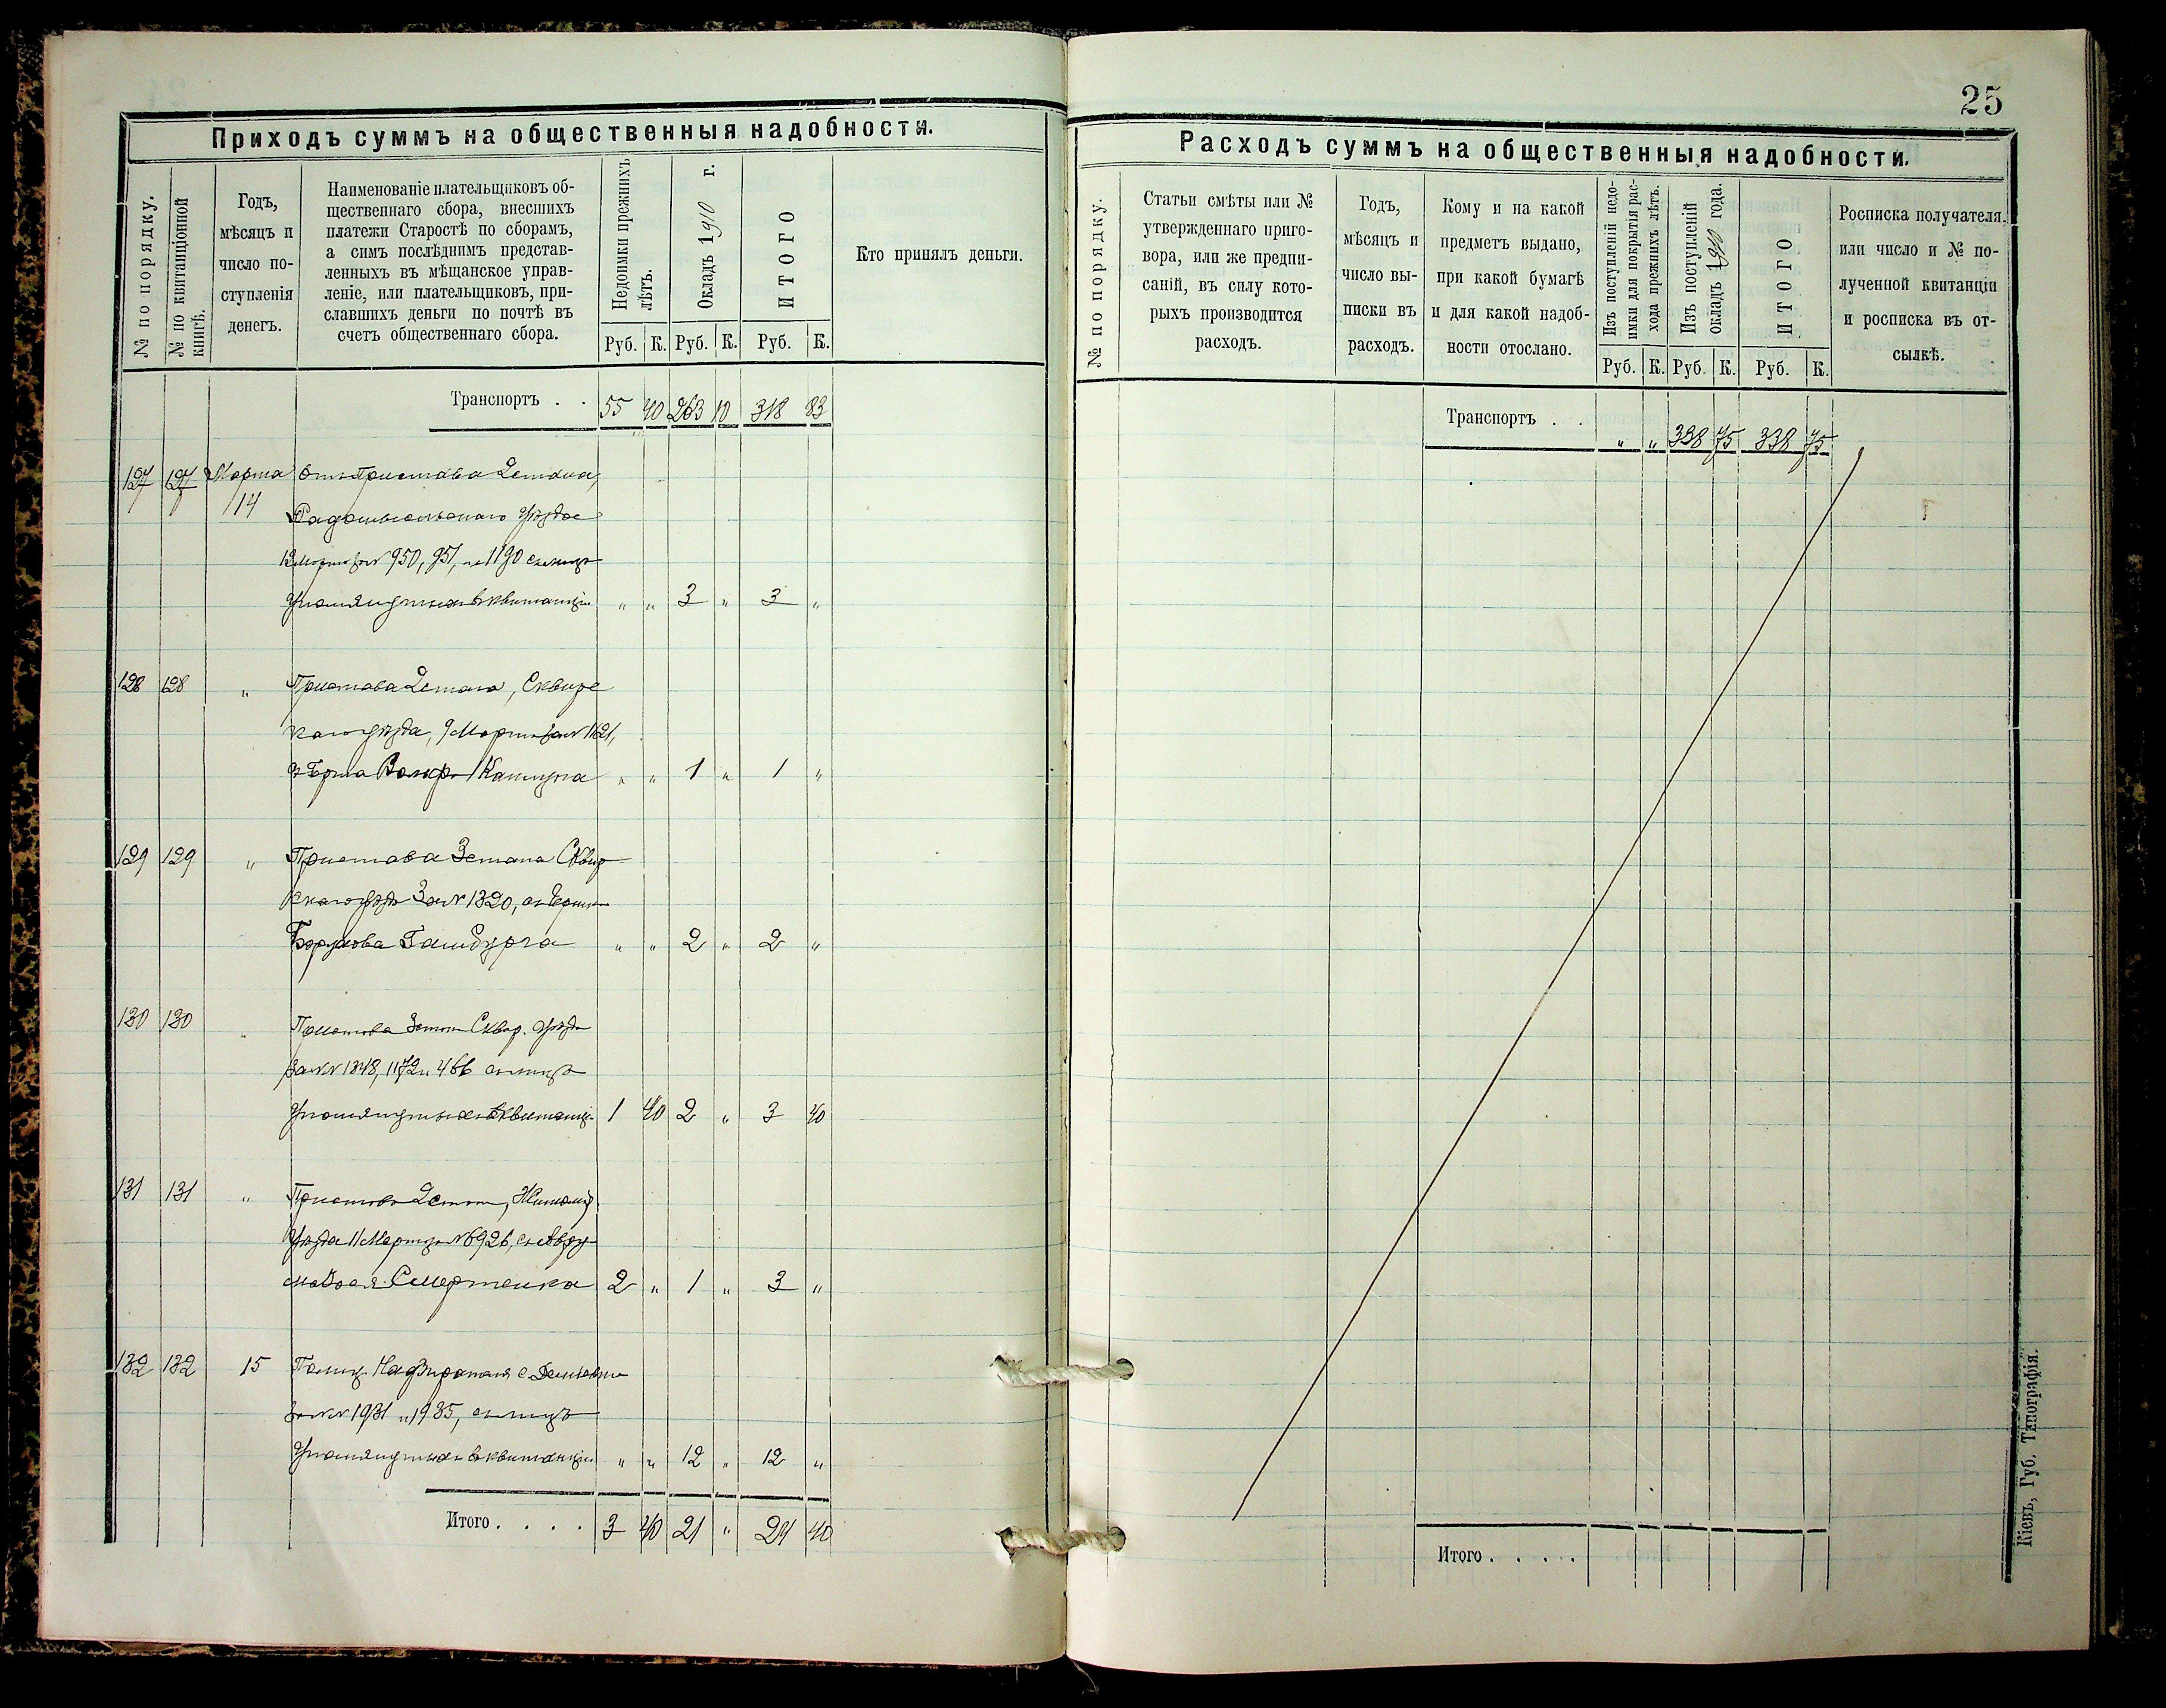 25
Приходъ суммъ на общественныя надобности.
№ по порядку.
№ по квитанціонной
книгѣ.
Годъ,
мѣсяцъ и
число по-
ступленія
денегъ.
Наименованіе плательщиковъ об-
щественнаго сбора, внесшихъ
платежи Старостѣ по сборамъ,
а симъ послѣднимъ представ-
ленныхъ въ мѣщанское управ-
леніе, или плательщиковъ, при-
славшихъ деньги по почтѣ въ
счетъ общественнаго сбора.
Недоимки прежнихъ
лѣтъ.
Окладъ 1910 г.
ИТОГО
Кто принялъ деньги.
Руб. К. Руб. К. Руб. К.
Транспортъ . . 55 40 263 10 318 83
127 127 Марта Отъ Пристава 2 стана,
14 Радомысльскаго уѣзда
12 Марта за № 950, 951, и 1190 съ лицъ
упомянутыхъ въ квитанціи „ „ 3 „ 3 „
128 128 „ Пристава 2 стана, Сквирс
каго уѣзда, 9 Марта за № 1121,
„ „ 1 „ 1 „
129 129 „ Пристава 3 стана Сквир
скаго уѣзда за № 1320,
„ „ 2 „ 2 „
130 130 „ Пристава 3 стана Сквир. уѣзда
за №№ 1348, 1172 и 466 съ лицъ
упомянутыхъ въ квитанціи 1 40 2 „ 3 40
131 131 „ Пристава 2 стана, Житомір.
уѣзда 11 Марта за № 6926,
2 „ 1 „ 3 „
132 132 15 Полиц. Надзирателя
за №№ 1931 и 1935, съ лицъ
упомянутыхъ въ квитанціи „ „ 12 „ 12 „
Итого . . . . 3 40 21 „ 24 40
Расходъ суммъ на общественныя надобности.
№ по порядку.
Статьи смѣты или №
утвержденнаго приго-
вора, или же предпи-
саній, въ силу кото-
рыхъ производится
расходъ.
Годъ,
мѣсяцъ и
число вы-
писки въ
расходъ.
Кому и на какой
предметъ выдано,
при какой бумагѣ
и для какой надоб-
ности отослано.
Изъ поступленій недо-
имки для покрытія рас-
хода прежнихъ лѣтъ.
Изъ поступленій
окладъ 1910 года.
ИТОГО
Росписка получателя,
или число и № по-
лученной квитанціи
и росписка въ от-
сылкѣ.
Руб. К. Руб. К. Руб. К.
Транспортъ . . „ „ 338 75 338 75
Итого . . . .
Кіевъ, Губ. Типографія.